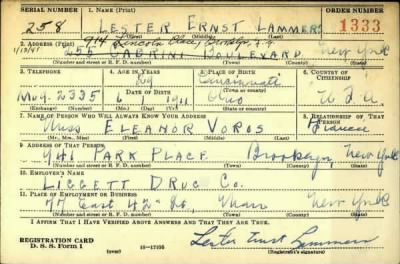 SERIAL NUMBER 1. NAME (Print) ORDER NUMBER
258 LESTER ERNST LAMMERS 1333
(First) (Middle) (Last)
2. ADDRESS (Print) 914 Lincoln Place, Brooklyn, N.Y.
555 CABRINI BOULEVARD New York
(Number and street or R. F. D. number) (Town) (County) (State)
3. TELEPHONE 4. AGE IN YEARS 5. PLACE OF BIRTH 6. COUNTRY OF CITIZENSHIP
Cincinnati
DATE OF BIRTH (Town or county)
2335 6 1911 Ohio
(Exchange) (Number) (Mo.) (Day) (Yr.) (State or country)
7. NAME OF PERSON WHO WILL ALWAYS KNOW YOUR ADDRESS 8. RELATIONSHIP OF THAT PERSON
Miss ELEANOR VOROS Fiancee
(Mr., Mrs., Miss) (First) (Middle) (Last)
9. ADDRESS OF THAT PERSON
941 PARK PLACE Brooklyn, New York
(Number and street or R. F. D. number) (Town) (County) (State)
10. EMPLOYER'S NAME
LIGGETT DRUG Co.
11. PLACE OF EMPLOYMENT OR BUSINESS
East 42 New York
(Number and street or R. F. D. number) (Town) (County) (State)
I AFFIRM THAT I HAVE VERIFIED ABOVE ANSWERS AND THAT THEY ARE TRUE.
Lester Ernst Lammers
REGISTRATION CARD
D. S. S. FORM 1 (over) 16-17105 (Registrant's signature)